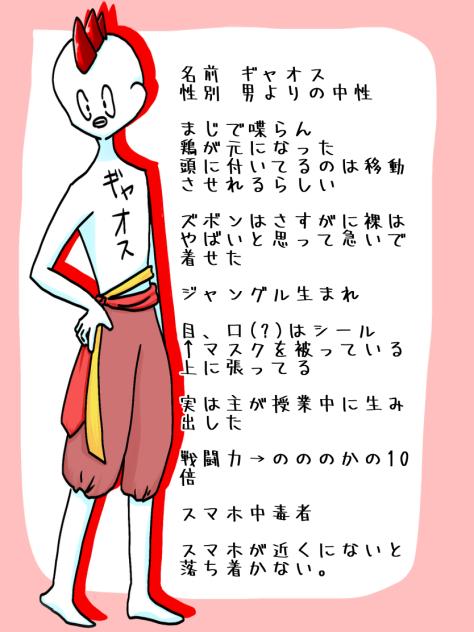 名前 ギャオス
性別 男よりの中性
まじで喋らん
鶏が元になった
頭に付いてるのは移動
させれるらしい
ズボンはさすがに裸は
やばいと思って急いで
着せた
ジャングル生まれ
目、口(?)はシール
↑マスクを被っている
上に張ってる
実は主が授業中に生み
出した
戦闘力→のののかの10
倍
スマホ中毒者
スマホが近くにないと
落ち着かない。
ギャオス